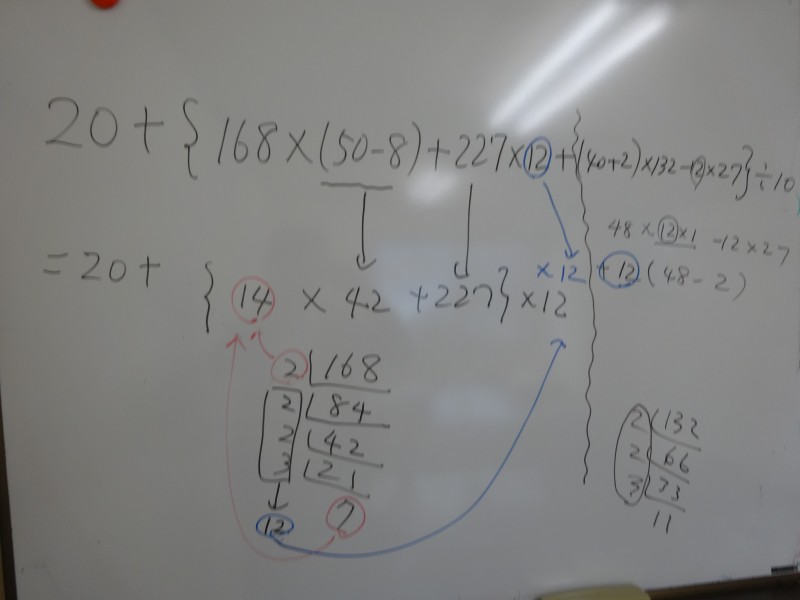 20+{168×(50-8)+227×12+{(40+2)×132-12×27}÷10
48×12×1 -12×27
=20+{14×42+227}×12
×12 +12(48-2)
2 168
2 84
2 42
3 21
12 7
2 132
2 66
3 33
11